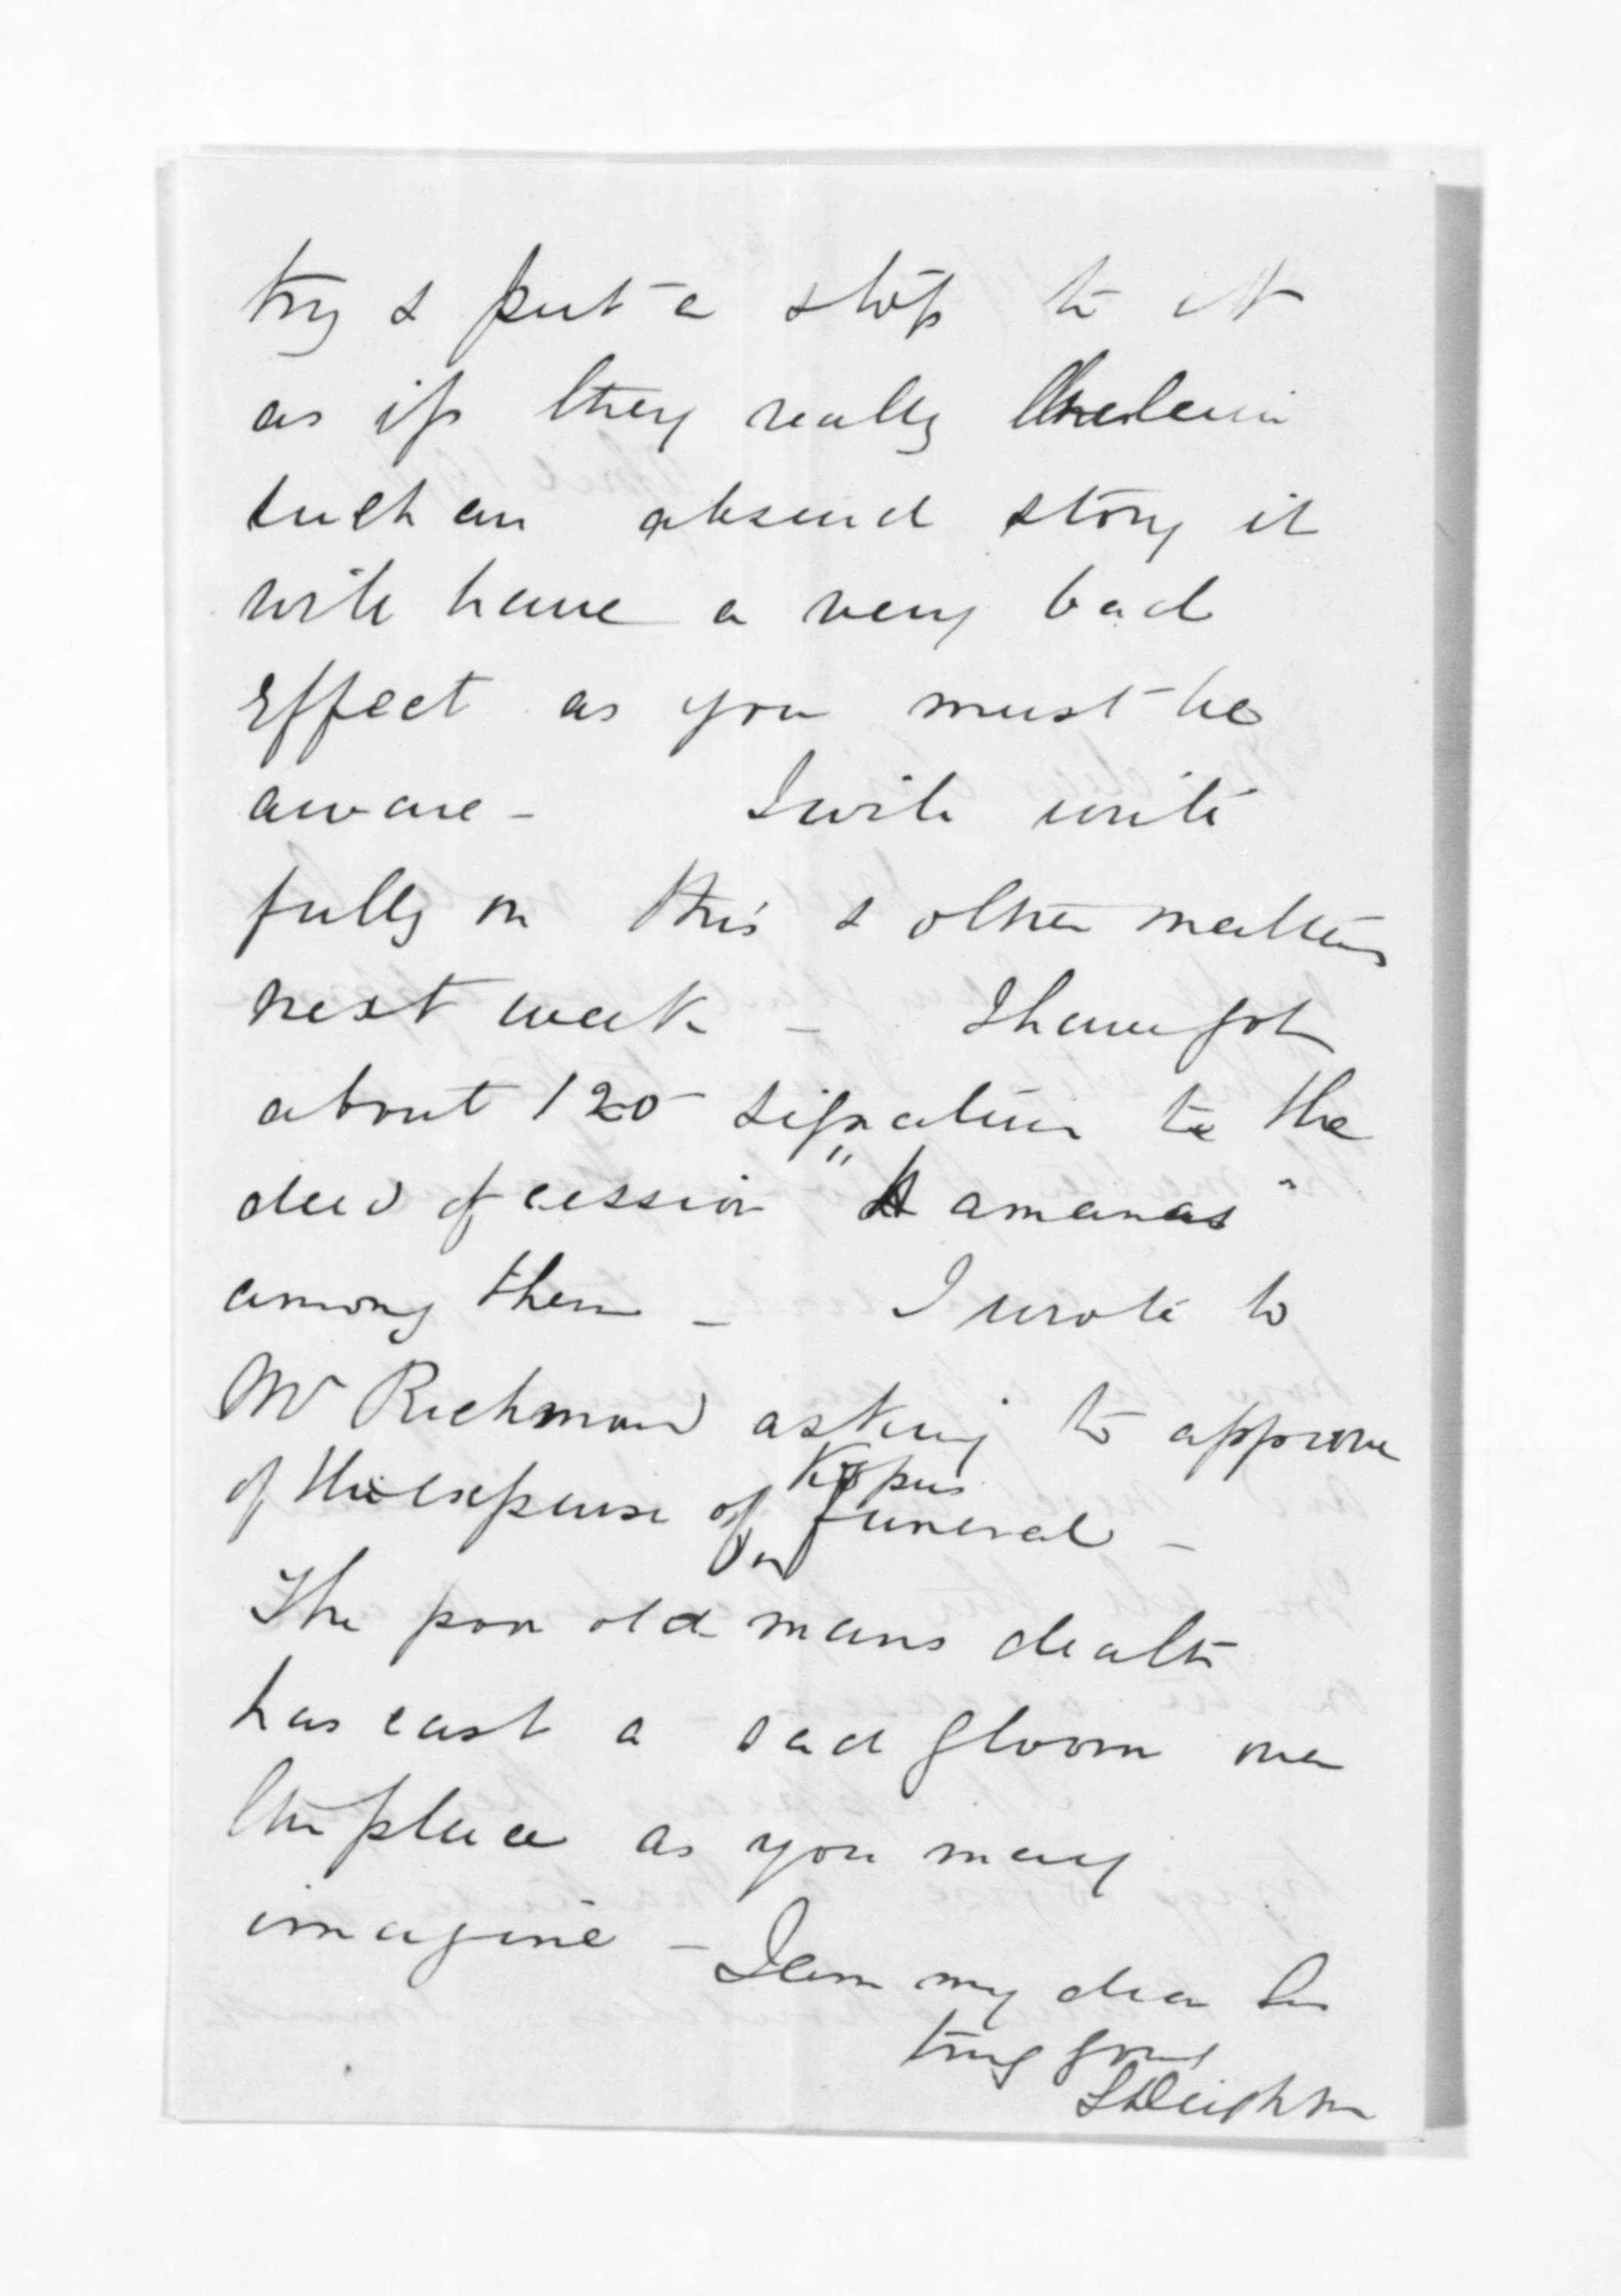 try & put a stop to it
as if they really believe
such an absurd story it
will have a very bad
effect as you must be
aware - I will write
fully on this & other matters
next week - I have got
about 120 signatures to the
deed of cession "Hamanas"
among them - I wrote to
Mr Richmond asking to approve
of the expense of Kopus funeral -
The poor old mans death
has cast a sad gloom over
the place as you may
imagine - I am my dear Sir
truly yours
S Deighton